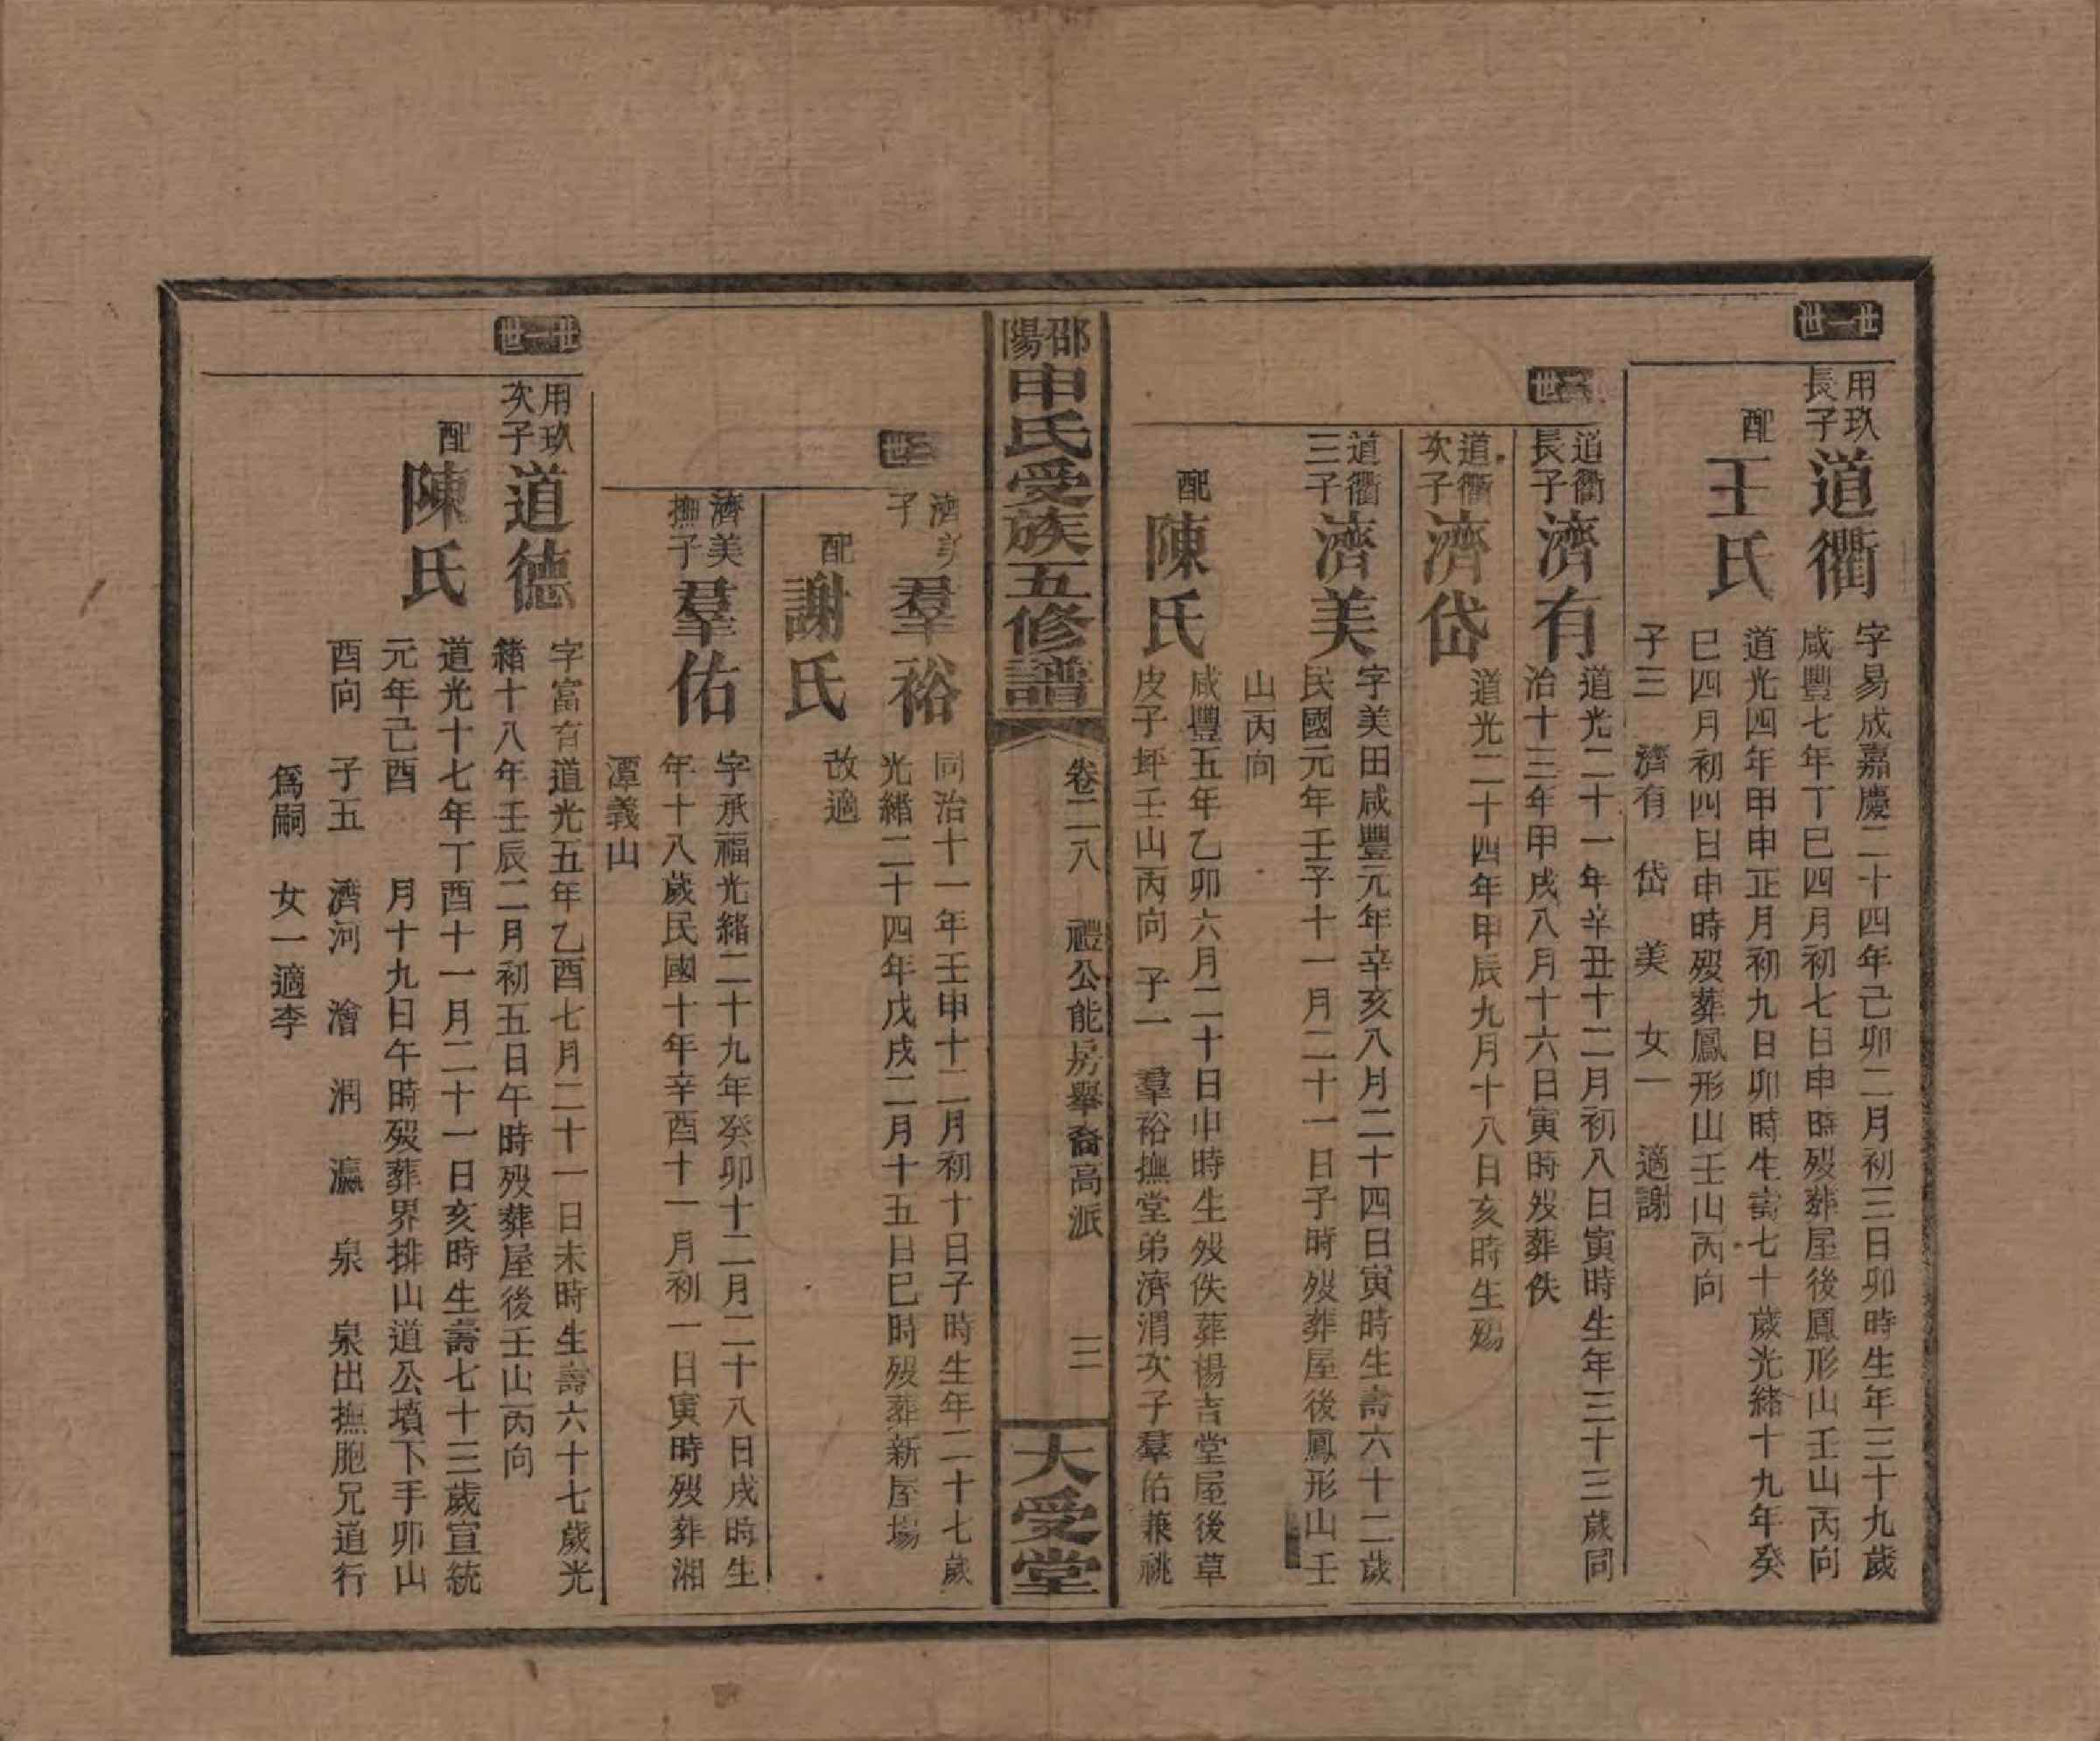 廿一世
用玖
長子
道衢
字易成嘉慶二十四年己卯二月初三日卯時生年三十九歲
咸豐七年丁巳四月初七日申時歿葬屋後鳳形山壬山丙向
配
王氏
道光四年甲申正月初九日卯時生壽七十歲光緒十九年癸
巳四月初四日申時歿葬鳳形山壬山丙向
子三 濟有 岱 美 女一 適謝
世
道衢
長子
濟有
道光二十一年辛丑十二月初八日寅時生年三十三歲同
治十三年甲戌八月十六日寅時歿葬佚
道衢
次子
濟岱
道光二十四年甲辰九月十八日亥時生殤
道衢
三子
濟美
字美田咸豐元年辛亥八月二十四日寅時生壽六十二歲
民國元年壬子十一月二十一日子時歿葬屋後鳳形山壬
山丙向
配
陳氏
咸豐五年乙卯六月二十日申時生歿佚葬楊吉堂屋後草
皮子坪壬山丙向 子一 羣裕撫堂弟濟渭次子羣佑兼祧
邵陽
申氏受族五修譜
卷二八 禮公能房舉裔高派 三
大受堂
世
濟美
子
羣裕
同治十一年壬申十二月初十日子時生年二十七歲
光緒二十四年戊戌二月十五日巳時歿葬新屋場
配
謝氏
改適
濟美
撫子
羣佑
字承福光緒二十九年癸卯十二月二十八日戌時生
年十八歲民國十年辛酉十一月初一日寅時歿葬湘
潭義山
廿一世
用玖
次子
道德
字富有道光五年乙酉七月二十一日未時生壽六十七歲光
緒十八年壬辰二月初五日午時歿葬屋後壬山丙向
配
陳氏
道光十七年丁酉十一月二十一日亥時生壽七十三歲宣統
元年己酉 月十九日午時歿葬界排山道公墳下手卯山
酉向 子五 濟河 濬 潤 瀛 泉 泉出撫胞兄道行
爲嗣 女一適李